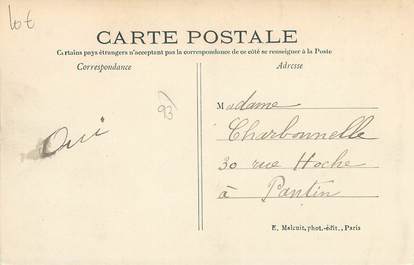 lot
CARTE POSTALE
Certains pays étrangers n'acceptant pas la correspondance de ce côté se renseigner à la Poste
Correspondance
Adresse
93)
Oui
Madame
Charbonnelle
30 rue Hoche
à Pantin
E. Malcuit, phot.-édit., Paris